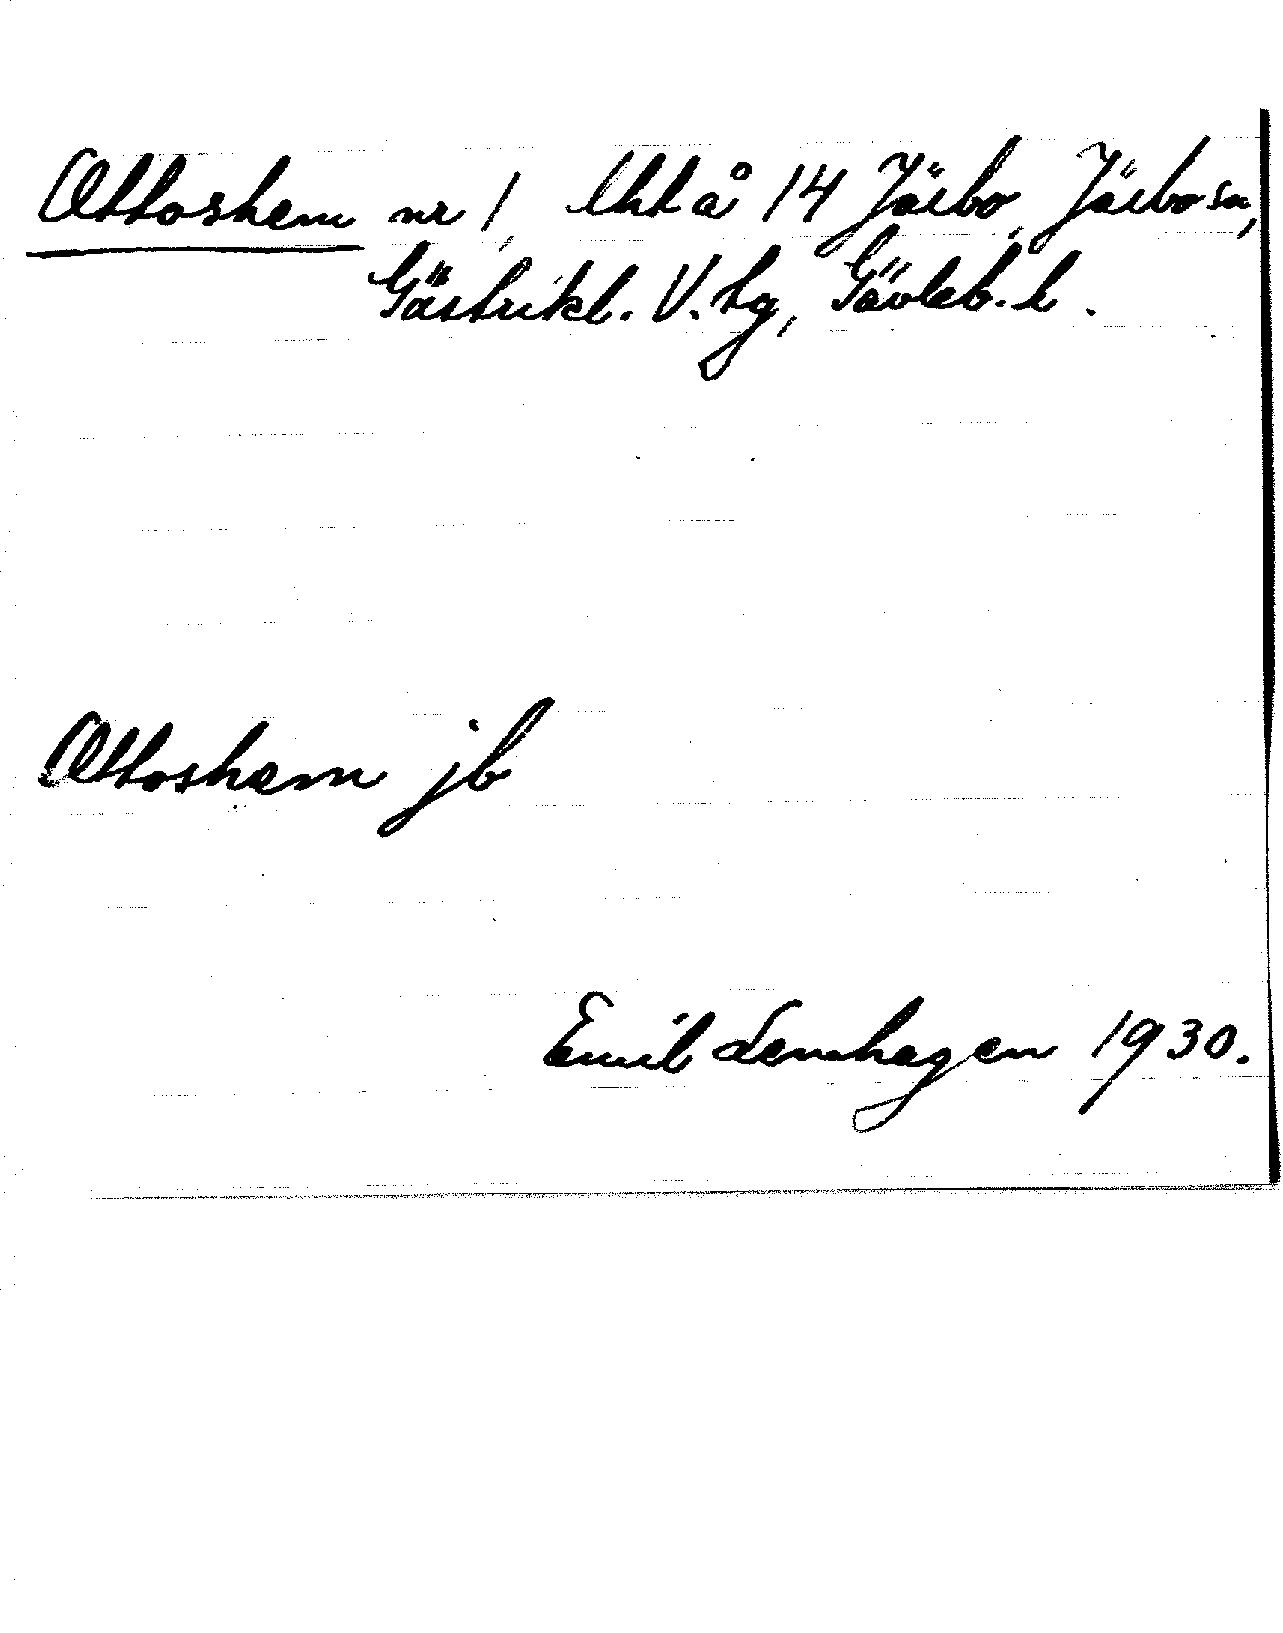 Ottoshem nr 1, lht å 14 Järbo, Järbo sn,
Gästrikl. V. tg, Gävleb. l.
Ottoshem jb
Emil Lenhagen 1930.